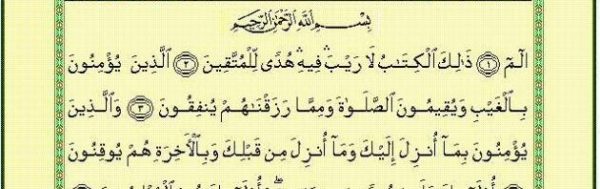 بِسْمِ ٱللَّهِ ٱلرَّحْمَٰنِ ٱلرَّحِيمِ
الٓمٓ ١ ذَٰلِكَ ٱلْكِتَٰبُ لَا رَيْبَ ۛ فِيهِ ۛ هُدًى لِّلْمُتَّقِينَ ٢ ٱلَّذِينَ يُؤْمِنُونَ
بِٱلْغَيْبِ وَيُقِيمُونَ ٱلصَّلَوٰةَ وَمِمَّا رَزَقْنَٰهُمْ يُنفِقُونَ ٣ وَٱلَّذِينَ
يُؤْمِنُونَ بِمَآ أُنزِلَ إِلَيْكَ وَمَآ أُنزِلَ مِن قَبْلِكَ وَبِٱلْءَاخِرَةِ هُمْ يُوقِنُونَ